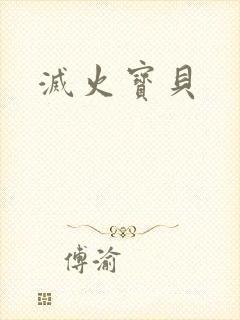 滅火寶貝
傅渝